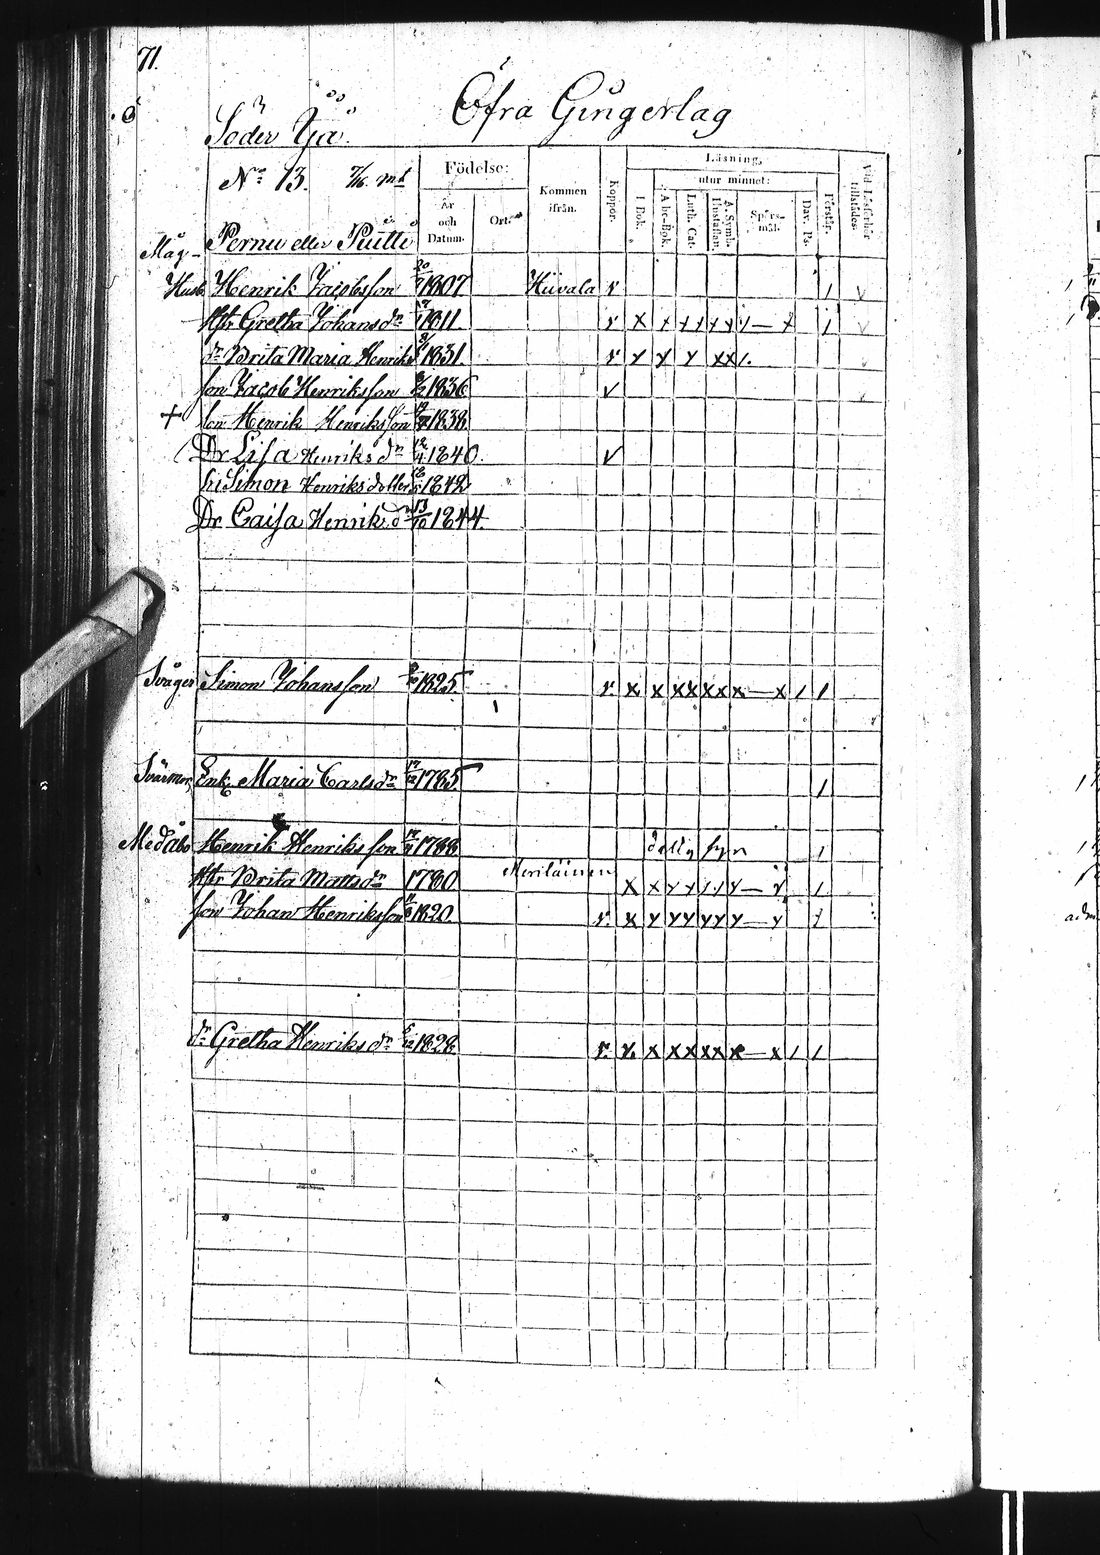 71.
Öfra Gingerlag
Söder Yja.
No 13. 7/16. mt
Födelse:
År och Datum.
Ort.
Kommen ifrån.
Koppor.
Läsning,
utur minnet:
I Bok.
A be-Bok.
Luth. Cat.
A. Symb. Hustaflan.
Spörs-mål.
Dav. Ps.
Förstår.
Vid Läsförhör tillstädes.
Pernu eller Puutti
Måg
Husb. Henrik Jacobsson 1807 Hiivala v 1
Hstr Gretha Johansdr 1811 v x
dr Brita Maria Henriks 1831 v
son Jacob Henriksson 1836 v
+ son Henrik Henriksson 1838
Dr Lisa Henriksdr 1840. v
Simon Henriks 1842
Dr Caisa Henriksdr 13/10 1844.
Svåger Simon Johansson 1825 v x x x x x x x — x 1 1
Svärmor, Enk. Maria Carlsdr 17/12 1785 1
Medåbo Henrik Henriksson 1788 dålig syn 1
Hstr Brita Mattsdr 1780 Meriläinen
son Johan Henriksson 1820 v.
dr Gretha Henriksdr 1828 v. x x x x x x x — x 1 1